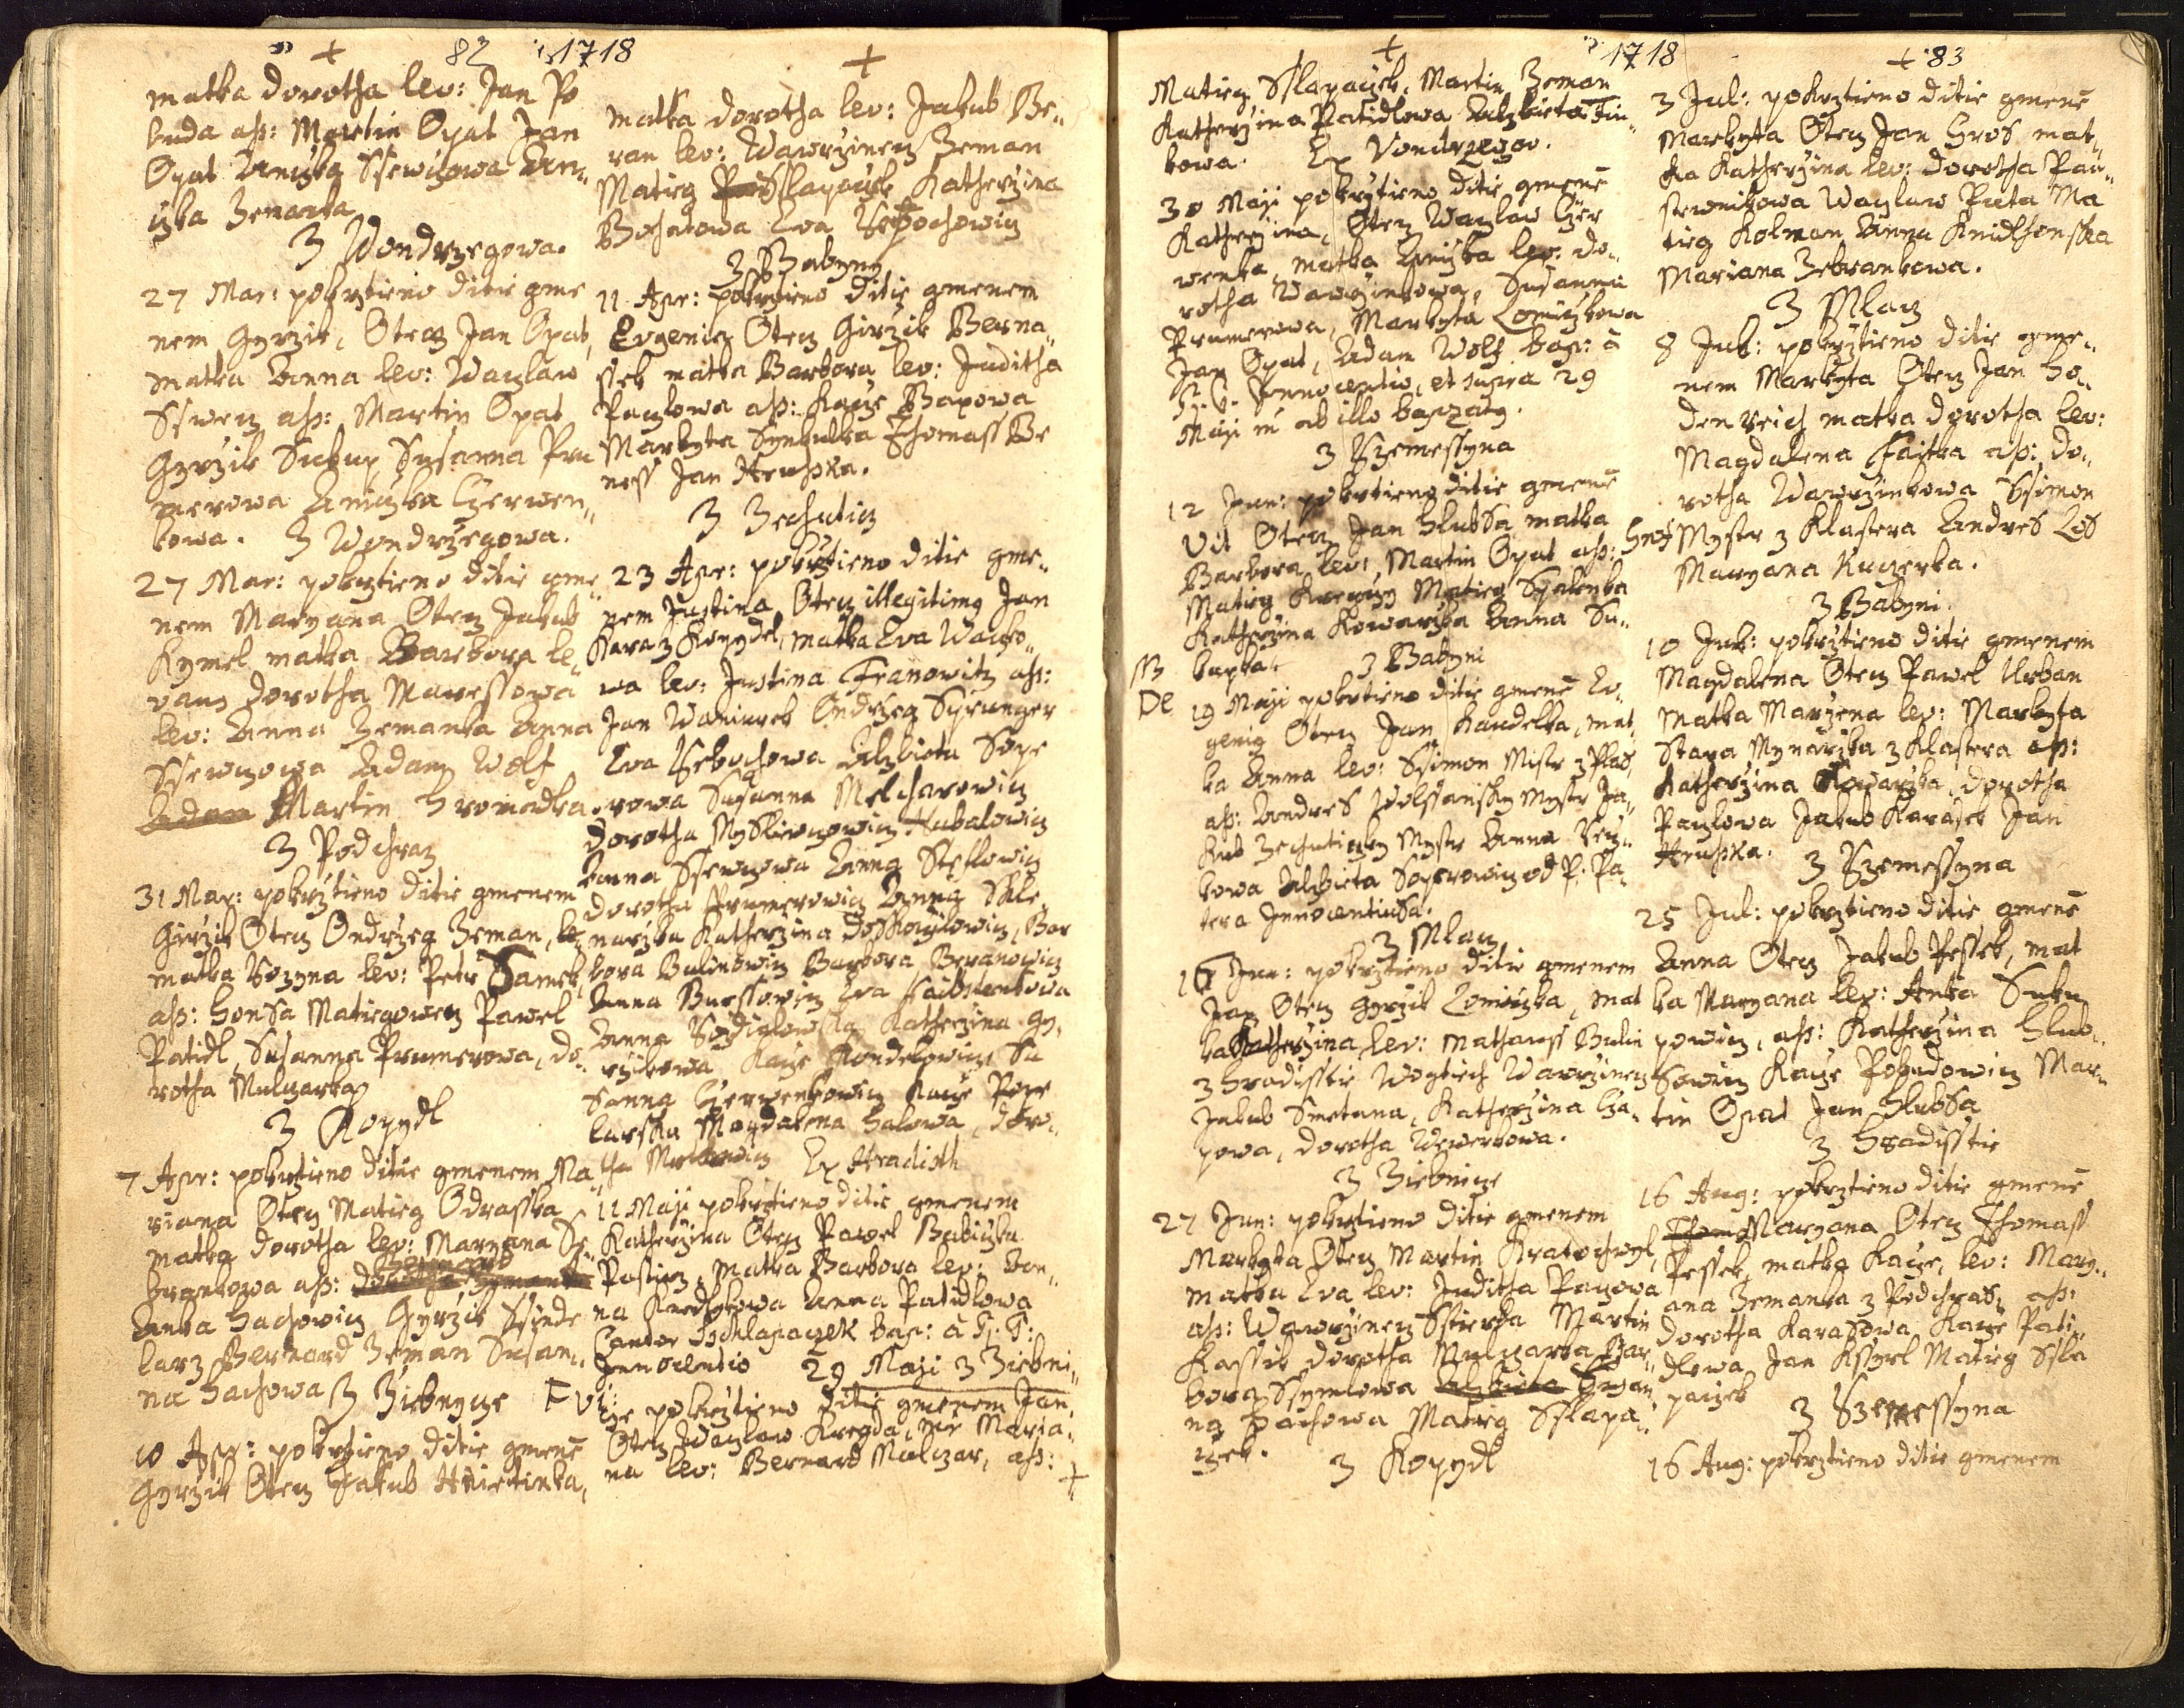 82 1718
matka dorotha lev: Jan Po
buda aß: Martin Opat Jan
Opat Aniczka Ssewczowa An„
czka Zemanka
Z Wondrzegowa.
27 Mar: pokrztieno ditie gme
nem Gyrzik, Otecz Jan Opat,
matka Anna lev: Waczlaw
Sswecz aß: Martin Opat
Gyrzik Sukup Susanna Pru
merowa Aniczka Czerwen„
kowa. Z Wondrzegowa.
27 Mar: pokrztieno ditie gme„
nem Maryana Otecz Jakub
Kymel matka Barbora le„
vans dorotha Maressowa
lev: Anna Zemanka Anna
Ssewczowa Adam Wolf
Martin Hromadka
Z Podchraz
31 Mar: pokrztieno ditie gmenem
Girzik Otecz Ondrzeg Zeman,
matka Rozyna lev: Petr Samek,
aß: Honsa Matiegowecz Pawel
Patidl, Susanna Prumerowa, do„
rotha Mulczarka
Z Kopydl
7 Apr: pokrztieno ditie gmenem Ma„
riana Otecz Matieg Odrasska
matka dorotha lev: Maryana Ze
brankowa aß:
Anka Hachowicz Gyrzik Ssinde
larz Bernard Zeman Susan„
na Hachowa Z Ziebnycze
10 Apr: pokrztieno ditie gmenē
Gyrzik Otecz Jakub Hnietinka,
matka dorotha lev: Jakub Be„
ran lev: Wawrzinecz Zeman
Matieg Sslapaczek Katherzina
Bohatowa Eva
Z Babyny
11 Apr: pokrztieno ditie gmenem
Evgenius Otecz Girzik Berna„
ssek matka Barbora lev: Juditha
Paczlowa aß: Kacze Bapowa
Markyta Synkulka Thomass Be
ness Jan Hruska.
Z Zechuticz
23 Apr: pokrztieno ditie gme„
nem Justina Otecz illegitimg Jan
Kara z Kopydel, matka Eva Wacko„
wa lev: Justina Franowitz aß:
Jan Waniurek Ondrzeg Sprunger
Eva Alzbieta Sope
rowa Susanna Melicharowicz
Dorotha Mysliwczowicz Hubalowicz
Anna Ssewczowa Anna Steflowicz
Dorotha Prumerowicz Anna Skle„
narzka Katherzina Doskoczilowicz, Bar
bora Bulinowicz Barbora Beranowicz
Anna Burssowicz Eva
Anna Katherzina Gy„
rzikowa Kacze Kondelowicz Su
sanna Czerwenkowicz Kacze Pope
larska Magdalena Halowa, doro„
tha Ex Hradisth
11 Maji pokrztieno ditie gmenem
Katherzina Otecz Pawel Babiczka
Pastirz, matka Barbora lev: An„
na Knedlykowa Anna Patidlowa
Cantor Schlapaczek bap: a P. P:
Innocentio 29 Maji Z Ziebni„
cze pokrztieno ditie gmenem Jan,
Otecz Waczlaw Kregda, Matie Maria„
na lev: Bernard Mulczar, aß:
1718
83
Matieg Sslapaczek, Martin Zeman
Katherzina Patidlowa Alzbieta Sin„
kowa. Ex Vondrzegov.
30 Maji pokrztieno ditie gmenē
Katherzina, Otecz Waczlaw Czer
wenka, matka Aniczka lev: do„
rotha Wawrzinkowa, Susanna
Prumerowa, Markyta Lomiczkowa
Jan Opat, Adam Wolf bap: a
P. P. Innocentio, et supra 29
Maji m ab illo bapzatg.
Z Krzemessyna
12 Jun: pokrztieno ditie gmenē
Vit Otecz Jan Hlubsa matka
Barbora lev: Martin Opat aß:
Matieg Kregczy Matieg Spalenka
Katherzina Kowarzka Anna Su„
kupka. Z Babyni
19 Maji pokrztieno ditie gmenē Ev„
genig Otecz Jan Kandelka, mat„
ka Anna lev: Ssimon Mistr z Klas,
aß: Andres Wolssansky Mystr Ja„
kub Zechuticzky Mystr Anna
kowa Alzbieta Soperowicz od P. Pa
tera Innocentiussa.
Z Mlacz
16 Jun: pokrztieno ditie gmenem
Jan Otecz Gyrzik Lomiczka, mat
ka Katherzina, lev: Mathauss Bulin
z Hradisstie Wogtiech Wawrzinecz
Jakub Smetana, Katherzina Cza„
powa, dorotha Wewerkowa.
Z Ziebnicze
27 Jun: pokrztieno ditie gmenem
Markyta Otecz Martin Kratochwyl,
matka Eva lev: Juditha Paczowa
aß: Wawrzinecz Sstierba Martin
Kassik dorotha Mulczarka Bar„
bora Ssymkowa
na Hachowa Matieg Sslapa„
czek. Z Kopydl
3 Jul: pokrztieno ditie gmenē
Markyta Otecz Jan Gros mat„
ka Katherzina lev: dorotha Pau„
stewnikowa Waczlaw Pieta Ma
tieg Kolman Anna Knidlhonska
Mariana Zebrankowa.
Z Mlacz
8 Jul: pokrztieno ditie gme„
nem Markyta Otecz Jan Ho„
denreich matka dorotha lev:
Magdalena Faitka aß: do„
rotha Wawrzinkowa Ssimon
Mystr z Klastera Andres Los
Maryana Kuczerka.
Z Babyni.
10 Jul: pokrztieno ditie gmenem
Magdalena Otecz Pawel Urban
matka Marzena lev: Markyta
Stara Mynarzka z Klastera aß:
Katherzina Kowarzka, dorotha
Paczlowa Jakub Karasek Jan
Hruska. Z Krzemessyna
25 Jul: pokrztieno ditie gmenē
Anna Otecz Jakub Pessek, mat
ka Maryana lev: Anka Suku
powicz, aß: Katherzina Hlub„
sowicz Kacze Pobudowicz Mar„
tin Opat Jan Hlubsa
Z Hradisstie
16 Aug: pokrztieno ditie gmenē
Maryana Otecz Thomass
Pessek, matka Kacze, lev: Mary„
ana Zemanka z Podchras, aß:
Dorotha Karasowa Kacze Pati„
dlowa Jan Kssyrl Matieg Ssla
paczek
Z Krzemessyna
16 Aug: pokrztieno ditie gmenem